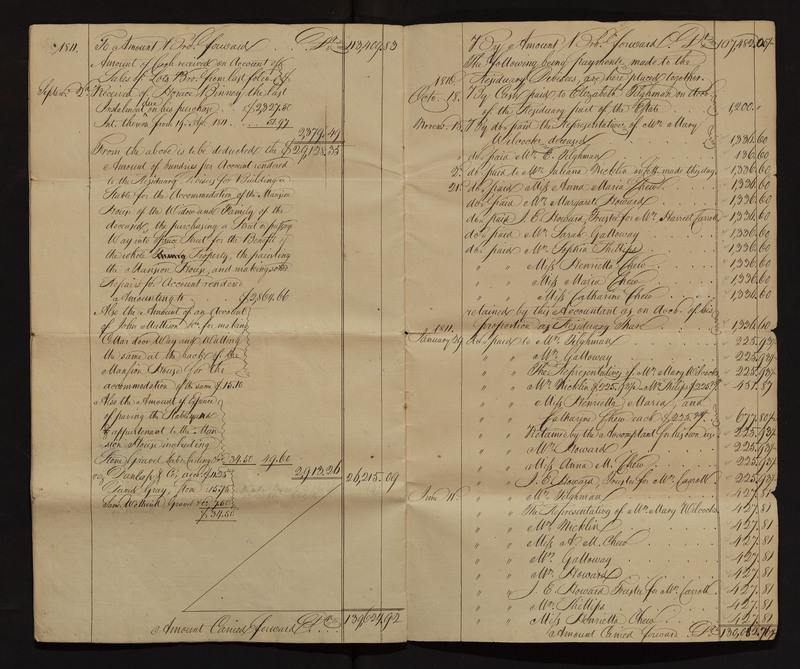 1811. To Amount Brot. forward Drs. 113,409.83
Amount of Cash received on Account of
Sales of Lots &c. Bro. from last folio
Septemr. 2d. Received of Horace Binney the last
Instalment due on his purchase $2,327.50
Int. thereon from 19. Apr. 1811 51.97
2,379.49
From the above is to be deducted the $29,128.35
Amount of Sundries for Account rendered
to the Residuary Devisees for Building a
Stable for the Accommodation of the Mansion
House of the Widow and Family of the
deceased, the purchasing a Street or passage
Way into Spruce Street for the Benefit of
the whole Property, the painting
the Mansion House, and making other
Repairs per Account rendered
Amounting to $2,864.66
Also the Amount of an Account
of John Matthew for making
Cellar door Way and Walling
the same at the back of the
Mansion House for the
accommodation of the same $15.10
Also the Amount of Expence
of paving the Stable yard
appurtenant to the Man-
sion House including
Stone Gravel 34.50 49.60
2,913.26 26,215.09
viz. Dunlap & Co. 11.25
Gray, Stone 15.75
Gravel 7.50
$34.50
Amount Carried forward Drs. 139,624.92
By Amount Brot. forward Drs. 107,482.
The following being payments made to the
1810. Residuary Devisees, are here placed together.
Octo. 18. By Cash paid to Elizabeth Tilghman on Acct.
of the Residuary part of the Estate 1,200.
Novemr. 15. By do. paid the Representatives of Mrs. Mary
Wilcocks deceased 1,336.60
" do. paid Mrs. E. Tilghman 136.60
do. paid to Mrs. Juliana Nicklin in full made this day 1,336.60
21. do. paid Miss Anna Maria Chew 1,336.60
do. paid Mrs. Margaret Howard 1,336.60
do. paid J. E. Howard, Trustee for Mrs. Harriet Carroll 1,336.60
do. paid Mrs. Sarah Galloway 1,336.60
do. paid Mrs. Sophia Phillips 1,336.60
" " Miss Henrietta Chew 1,336.60
" " Miss Maria Chew 1,336.60
" " Miss Catharine Chew 1,336.60
retained by this Accountant as on Acct. of his
1811. proportion as Residuary Share 1,336.60
January 29 do. paid to Mrs. Tilghman 225.93½
" " Mrs. Galloway 225.93½
" " The Representatives of Mrs. Mary Wilcocks 225.93½
" " Mrs. Nicklin $225.93½ Mrs. Philips $225.93½ 451.87
" " Miss Henrietta Maria, and
Catharine Chew each $225.93½ 677.80½
" " Retained by the Accomptant for his own use 225.93½
" " Mrs. Howard 225.93½
" " Miss Anna M. Chew 225.93½
" " J. E. Howard, Trustee for Mrs. Carroll 225.93½
June 11. " " Mrs. Tilghman 427.81
" " The Representatives of Mrs. Mary Wilcocks 427.81
" " Mrs. Nicklin 427.81
" " Miss A. M. Chew 427.81
" " Mrs. Galloway 427.81
" " Mrs. Howard 427.81
" " J. E. Howard Trustee for Mrs. Carroll 427.81
" " Mrs. Phillips 427.81
" " Miss Henrietta Chew 427.81
Amount Carried forward Drs. 130,